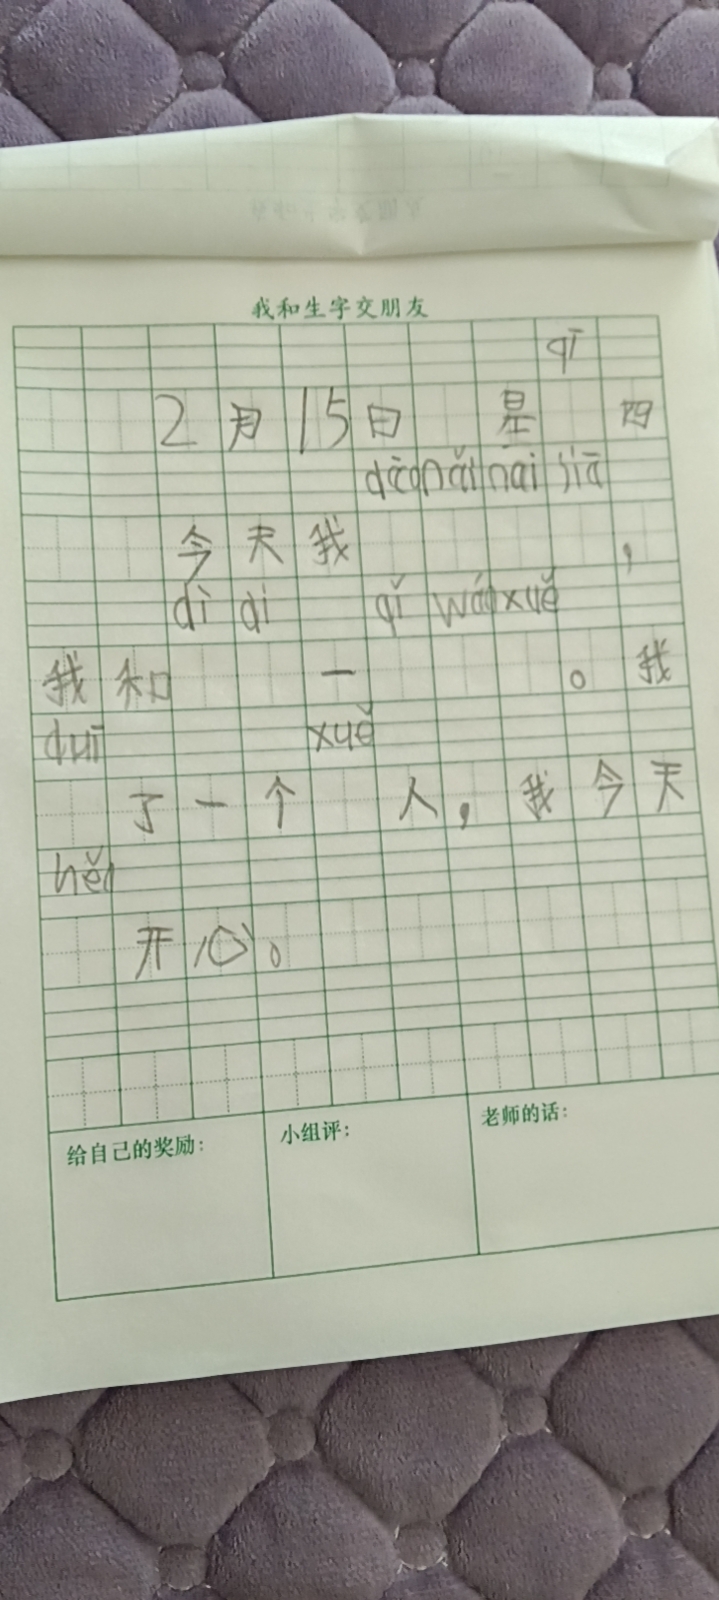 我和生字交朋友
qī
2月15日 星 四
dào nǎi nai jiā
今天我 ，
dì di qǐ wán xuě
我和 一 。我
duī xuě
了一个 人，我今天
hěn
开心。
给自己的奖励：
小组评：
老师的话：